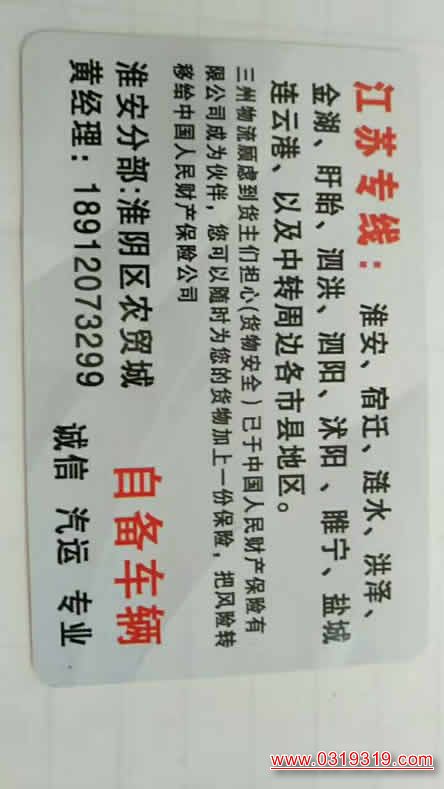 江苏专线：淮安、宿迁、涟水、洪泽、
金湖、盱眙、泗洪、泗阳、沭阳、睢宁、盐城
连云港、以及中转周边各市县地区。
三州物流顾虑到货主们担心(货物安全)已于中国人民财产保险有
限公司成为伙伴，您可以随时为您的货物加上一份保险，把风险转
移给中国人民财产保险公司
淮安分部:淮阴区农贸城
黄经理：18912073299
自备车辆
诚信 汽运 专业
www.0319319.com